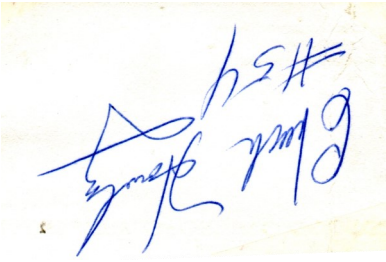 Chuck Howley
#54